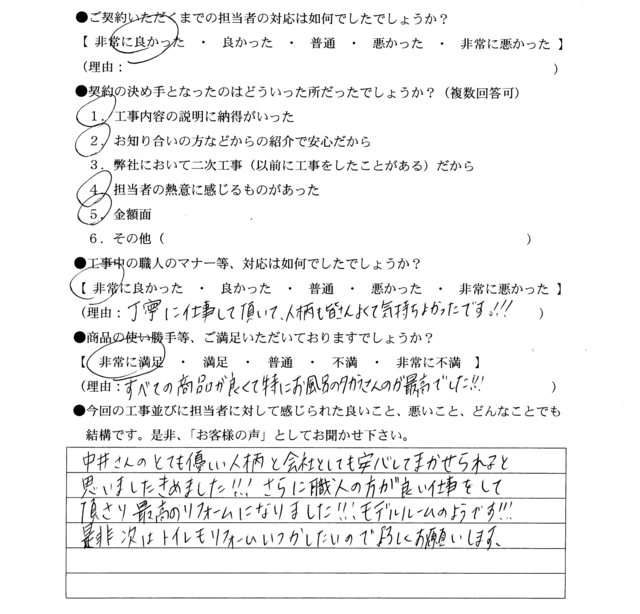 ●ご契約いただくまでの担当者の対応は如何でしたでしょうか？
【 非常に良かった ・ 良かった ・ 普通 ・ 悪かった ・ 非常に悪かった 】
（理由： ）
●契約の決め手となったのはどういった所だったでしょうか？（複数回答可）
1．工事内容の説明に納得がいった
2．お知り合いの方などからの紹介で安心だから
3．弊社において二次工事（以前に工事をしたことがある）だから
4．担当者の熱意に感じるものがあった
5．金額面
6．その他（ ）
●工事中の職人のマナー等、対応は如何でしたでしょうか？
【 非常に良かった ・ 良かった ・ 普通 ・ 悪かった ・ 非常に悪かった 】
（理由：丁寧に仕事して頂いて、人柄も皆さんよくて気持ちよかったです。!!! ）
●商品の使い勝手等、ご満足いただいておりますでしょうか？
【 非常に満足 ・ 満足 ・ 普通 ・ 不満 ・ 非常に不満 】
（理由：すべての商品が良くて特にお風呂のタカラさんのが最高でした!!! ）
●今回の工事並びに担当者に対して感じられた良いこと、悪いこと、どんなことでも
結構です。是非、「お客様の声」としてお聞かせ下さい。
中井さんのとても優しい人柄と会社としても安心してまかせられると
思いましたきめました!!! さらに職人の方が良い仕事をして
頂さり最高のリフォームになりました!!! モデルルームのようです!!!
是非次はトイレもリフォームいつかしたいのでよろしくお願いします、